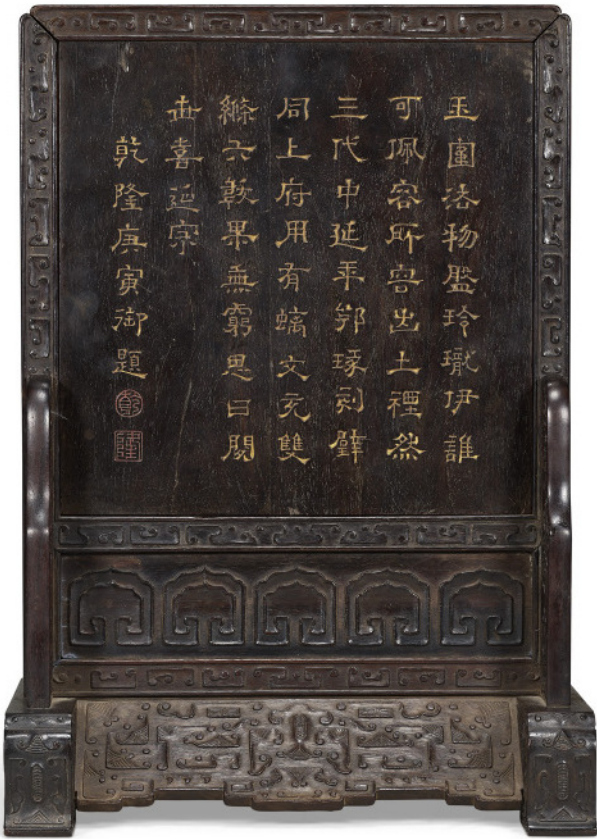 玉法物玲瓏伊誰
可佩容所容出土然
三代中延平琢剡
同上府用有螭文充雙
絛六果無窮思日閱
世喜延宗
乾隆庚寅御題
乾
隆